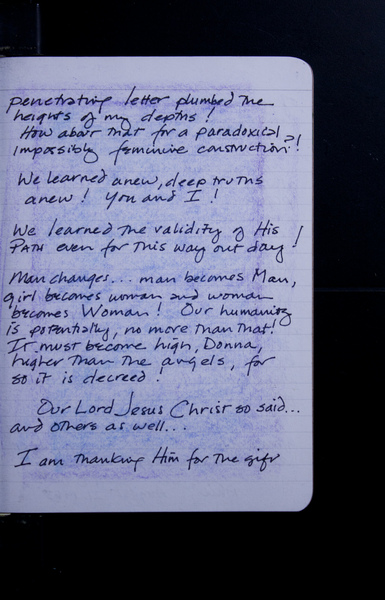 penetrating letter plumbed the
heights of my depths!
How about that for a paradoxical
impossibly feminine construction?!
We learned anew, deep truths
anew! You and I!
We learned the validity of His
Path even for this way out day!
Man changes... man becomes Man,
girl becomes woman and woman
becomes Woman! Our humanity
is potentially, no more than that!
It must become high, Donna,
higher than the angels, for
so it is decreed!
Our Lord Jesus Christ so said...
and others as well...
I am thanking Him for the gift